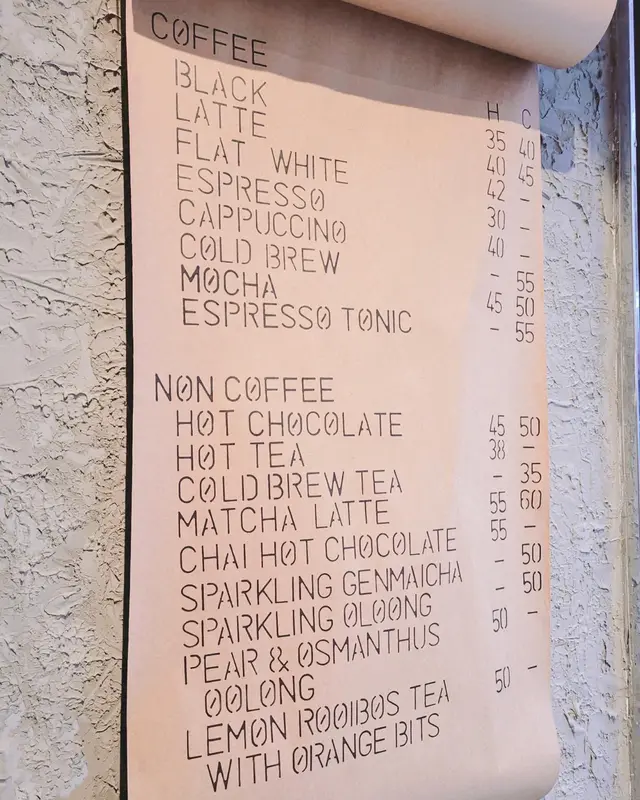 COFFEE
H C
BLACK 35 40
LATTE 40 45
FLAT WHITE 42 -
ESPRESSO 30 -
CAPPUCCINO 40 -
COLD BREW - 55
MOCHA 45 50
ESPRESSO TONIC - 55
NON COFFEE
HOT CHOCOLATE 45 50
HOT TEA 38 -
COLD BREW TEA - 35
MATCHA LATTE 55 60
CHAI HOT CHOCOLATE 55 -
SPARKLING GENMAICHA - 50
SPARKLING OLOONG - 50
PEAR & OSMANTHUS 50 -
OOLONG
LEMON ROOIBOS TEA 50 -
WITH ORANGE BITS